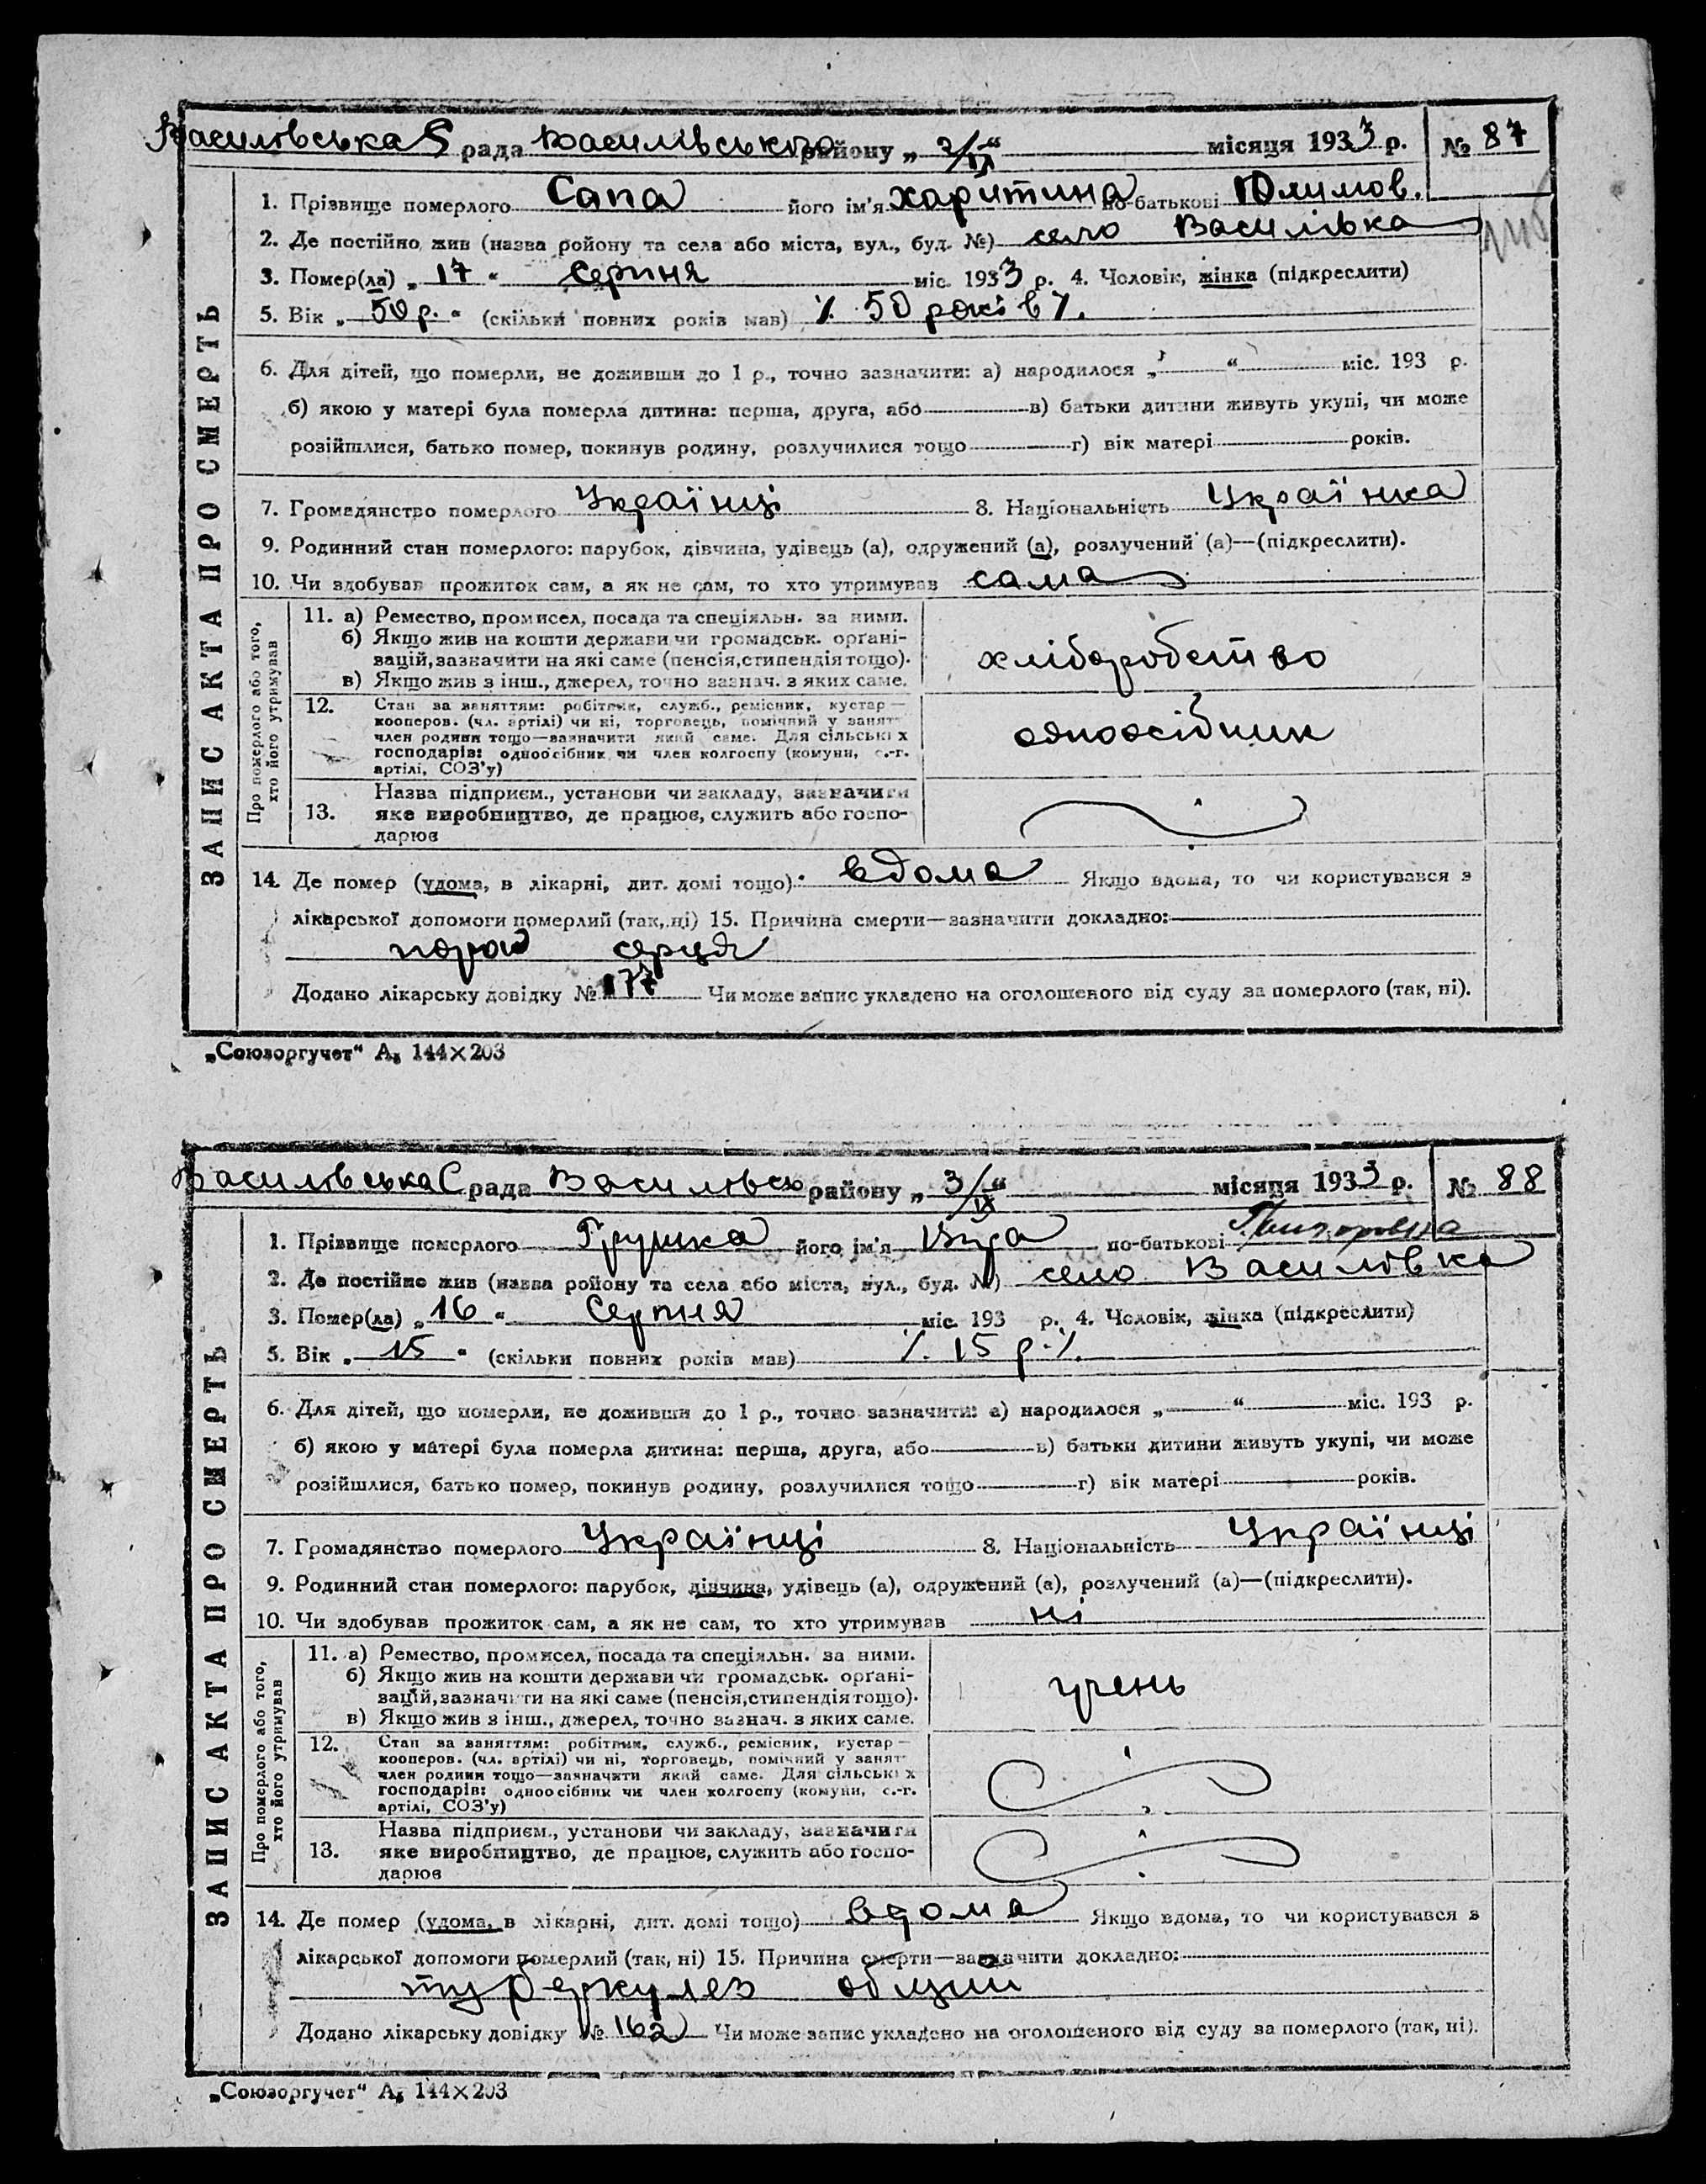 Василівська С рада Василівського району „ 3/ІХ “ місяця 1933 р. № 87
1. Прізвище померлого Сапа його ім'я Харитина по-батькові Юлимов.
2. Де постійно жив (назва ройону та села або міста, вул., буд. №) село Василівка
3. Помер(ла) „ 17 “ Серпня міс. 1933 р. 4. Чоловік, жінка (підкреслити)
5. Вік „ 50 р. “ (скільки повних років мав) ٪ 50 років ٪
6. Для дітей, що померли, не доживши до 1 р., точно зазначити: а) народилося „ “ міс. 193 р.
б) якою у матері була померла дитина: перша, друга, або в) батьки дитини живуть укупі, чи може
розійшлися, батько помер, покинув родину, розлучилися тощо г) вік матері років.
7. Громадянство померлого Українці 8. Національність Українка
9. Родинний стан померлого: парубок, дівчина, удівець (а), одружений (а), розлучений (а)—(підкреслити).
10. Чи здобував прожиток сам, а як не сам, то хто утримував сама
ЗАПИС АКТА ПРО СМЕРТЬ
Про померлого або того, хто його утримував
11. а) Ремество, промисел, посада та спеціяльн. за ними.
б) Якщо жив на кошти держави чи громадськ. орґані-
зацій, зазначити на які саме (пенсія, стипендія тощо).
в) Якщо жив з інш., джерел, точно зазнач. з яких саме.
хліборобство
12. Стан за заняттям: робітник, служб., ремісник, кустар—
кооперов. (чл. артілі) чи ні, торговець, помічний у занят
член родини тощо—зазначити який саме. Для сільських
господарів: одноосібник чи член колгоспу (комуни, с.-г.
артілі, СОЗ'у)
одноосібник
13. Назва підприєм., установи чи закладу, зазначити
яке виробництво, де працює, служить або госпо-
дарює
14. Де помер (удома, в лікарні, дит. домі тощо) вдома Якщо вдома, то чи користувався з
лікарської допомоги померлий (так, ні) 15. Причина смерти—зазначити докладно:
порок серця
Додано лікарську довідку № 177 Чи може запис укладено на оголошеного від суду за померлого (так, ні).
„Союзоргучет“ А₅ 144×203
Василівська С рада Василівсько району „ 3/ІХ “ місяця 1933 р. № 88
1. Прізвище померлого Грушка його ім'я Віра по-батькові Григоровна
2. Де постійно жив (назва ройону та села або міста, вул., буд. №) село Василівка
3. Помер(ла) „ 16 “ Серпня міс. 193 р. 4. Чоловік, жінка (підкреслити)
5. Вік „ 15 “ (скільки повних років мав) ٪ 15 р. ٪
6. Для дітей, що померли, не доживши до 1 р., точно зазначити: а) народилося „ “ міс. 193 р.
б) якою у матері була померла дитина: перша, друга, або в) батьки дитини живуть укупі, чи може
розійшлися, батько помер, покинув родину, розлучилися тощо г) вік матері років.
7. Громадянство померлого Українці 8. Національність Українці
9. Родинний стан померлого: парубок, дівчина, удівець (а), одружений (а), розлучений (а)—(підкреслити).
10. Чи здобував прожиток сам, а як не сам, то хто утримував ні
ЗАПИС АКТА ПРО СМЕРТЬ
Про померлого або того, хто його утримував
11. а) Ремество, промисел, посада та спеціяльн. за ними.
б) Якщо жив на кошти держави чи громадськ. орґані-
зацій, зазначити на які саме (пенсія, стипендія тощо).
в) Якщо жив з інш., джерел, точно зазнач. з яких саме.
учень
12. Стан за заняттям: робітник, служб., ремісник, кустар—
кооперов. (чл. артілі) чи ні, торговець, помічний у занят
член родини тощо—зазначити який саме. Для сільських
господарів: одноосібник чи член колгоспу (комуни, с.-г.
артілі, СОЗ'у)
13. Назва підприєм., установи чи закладу, зазначити
яке виробництво, де працює, служить або госпо-
дарює
14. Де помер (удома, в лікарні, дит. домі тощо) вдома Якщо вдома, то чи користувався з
лікарської допомоги померлий (так, ні) 15. Причина смерти—зазначити докладно:
туберкулез общий
Додано лікарську довідку № 162 Чи може запис укладено на оголошеного від суду за померлого (так, ні).
„Союзоргучет“ А₅ 144×203